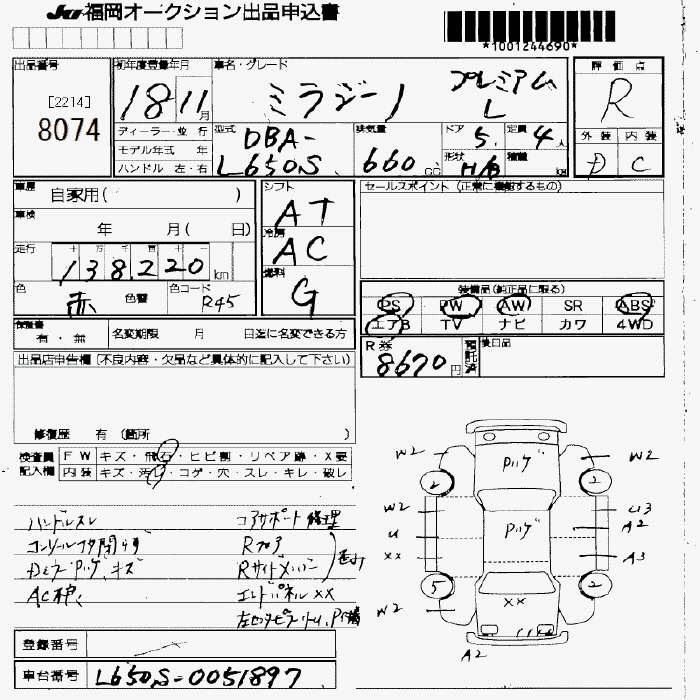 JU福岡オークション出品申込書
*1001244690*
出品番号
[2214]
8074
初年度登録年月
18 11月
車名・グレード
ミラジーノ
プレミアム
L
評価点
R
外装 内装
D C
ディーラー・並行
モデル年式 年
ハンドル 左・右
型式
DBA-
L650S
排気量
660cc
ドア
5
定員
4人
形状
H/B
積載
kg
車歴
自家用( )
車検
年 月( 日)
走行
十 万 千 百 十
138,220km
色
赤
色替
色コード
R45
シフト
AT
冷房
AC
燃料
G
セールスポイント (正常に機能するもの)
装備品(純正品に限る)
PS PW AW SR ABS
エアB TV ナビ カワ 4WD
保証書
有・無
名変期限 月 日迄に名変できる方
R券
8670円
預託済
後日品
出品店申告欄 (不良内容・欠品など具体的に記入して下さい)
修復歴 有 (箇所 )
検査員
記入欄
FW キズ・飛石・ヒビ割・リペア跡・X要
内装 キズ・汚れ・コゲ・穴・スレ・キレ・破レ
ハンドルスレ
キズ
コアサポート修理
Rフロア
エンドパネルXX
W2
Pハゲ
W2
2
2
W2
U
XX
Pハゲ
U3
A2
A3
5
2
W2
XX
W2
A2
登録番号
車台番号
L650S-0051897